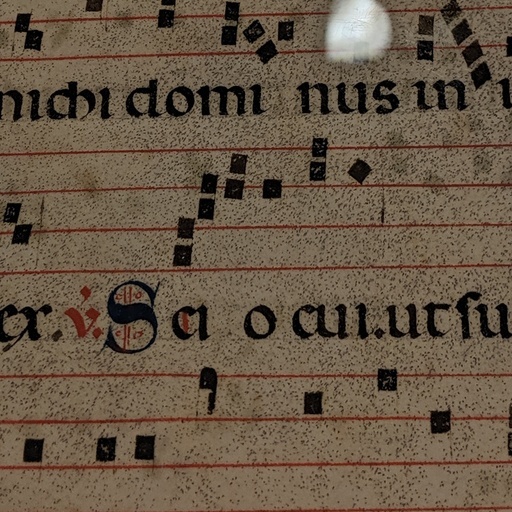 michi domi nus in
ex. v. Sci o cui. ut su